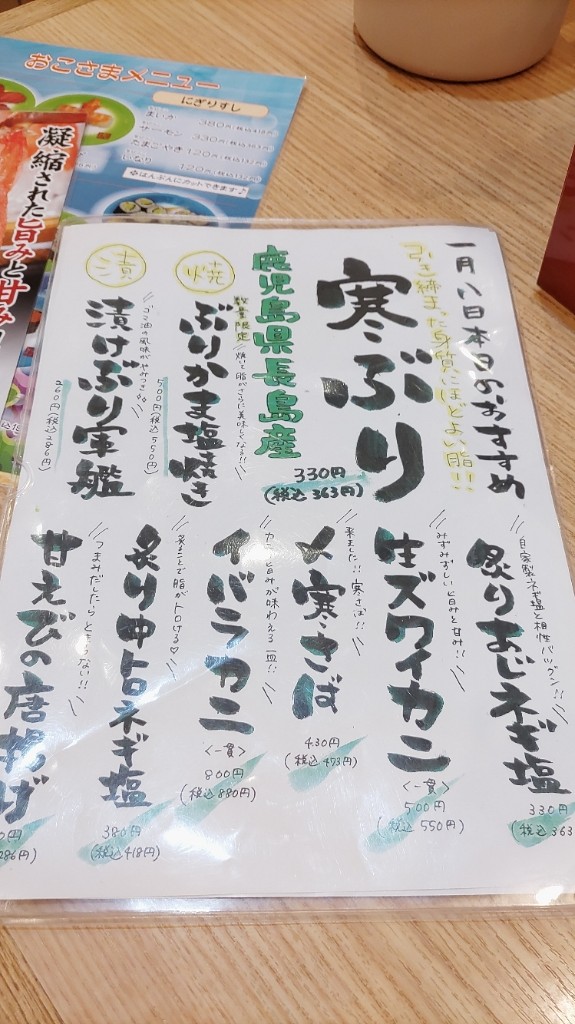 一月八日本日のおすすめ
引き締まった身質にほどよい脂!!
寒ぶり
330円
(税込363円)
鹿児島県長島産
焼
数量限定
焼いて脂がさらに美味しくなる!!
ぶりかま塩焼き
500円(税込550円)
漬
ゴマ油の風味がやみつき
漬けぶり軍艦
260円(税込286円)
自家製ネギ塩と相性バツグン!!
炙りあじネギ塩
330円
(税込363
みずみずしい旨みと甘み!!
生ズワイカニ
<一貫>
500円
(税込550円)
来ました!!寒さば!!
〆寒さば
430円
(税込473円)
カニの旨みが味わえる一皿!!
イバラカニ
<一貫>
800円
(税込880円)
炙ることで脂がトロける♡
炙り中トロネギ塩
380円
(税込418円)
つまみだしたらとまらない!!
甘えびの唐揚げ
0円
286円)
おこさまメニュー
にぎりすし
まいか 380円
サーモン 330円
たまごやき 120円
いなり 120円
はんぶんにカットできます♪
凝縮された旨みと甘み!